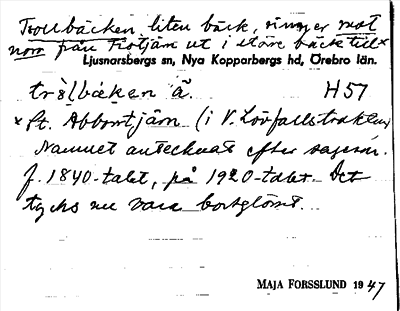 Trollbäcken, liten bäck, rinner mot
norr från Trotjärn ut i större bäck till x
Ljusnarsbergs sn, Nya Kopparbergs hd, Örebro län.
trål̨bäcken ä. H57
x St. Abborrtjärn (i V. Lövfallstrakten)
Namnet antecknat efter sagesm.
f. 1840-talet, på 1920-talet. Det
tycks nu vara bortglömt.
MAJA FORSSLUND 1947